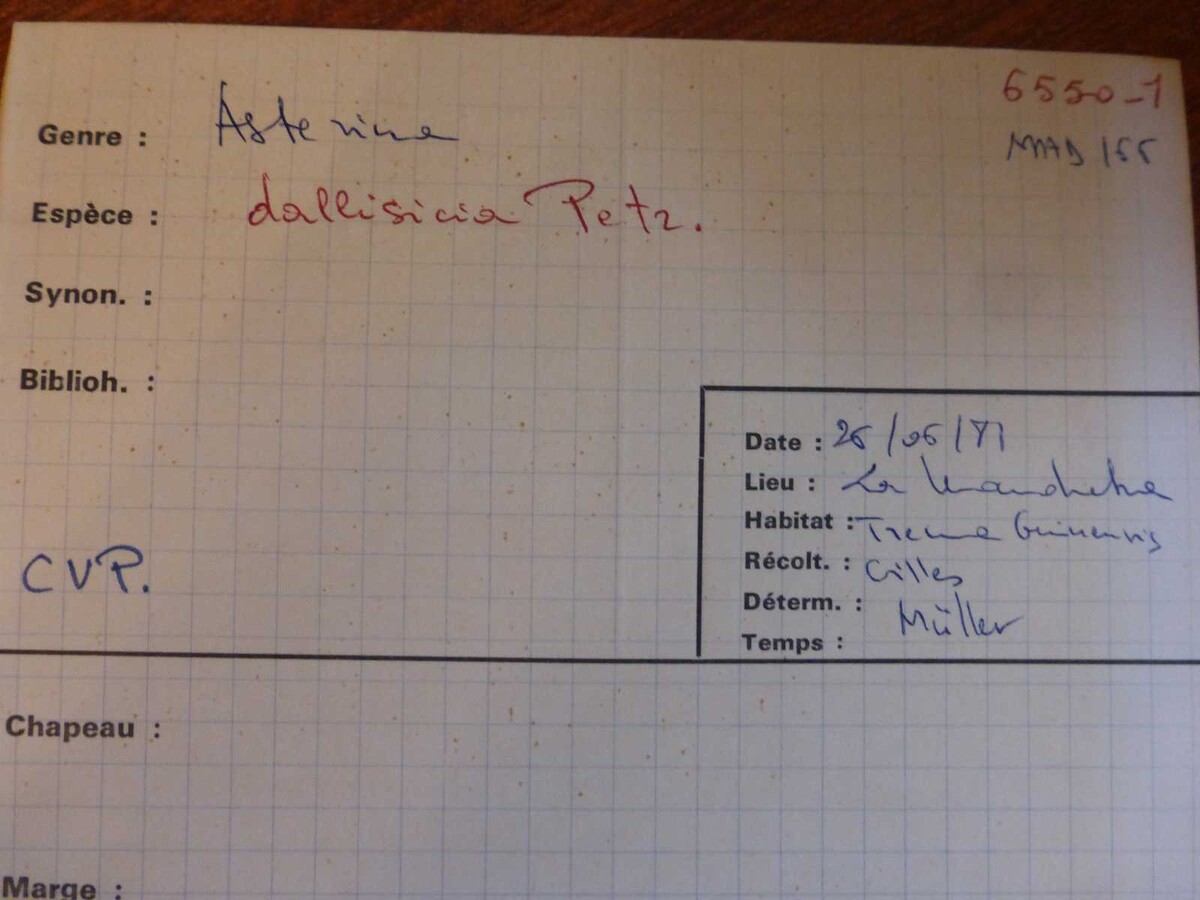 6550-1
MAD 155
Genre : Asterina
Espèce : dallisicia Petr.
Synon. :
Biblioh. :
Date : 26/06/71
Lieu : La
Habitat : Trema Guineensis
Récolt. : Gilles
Déterm. : Müller
Temps :
CVP.
Chapeau :
Marge :